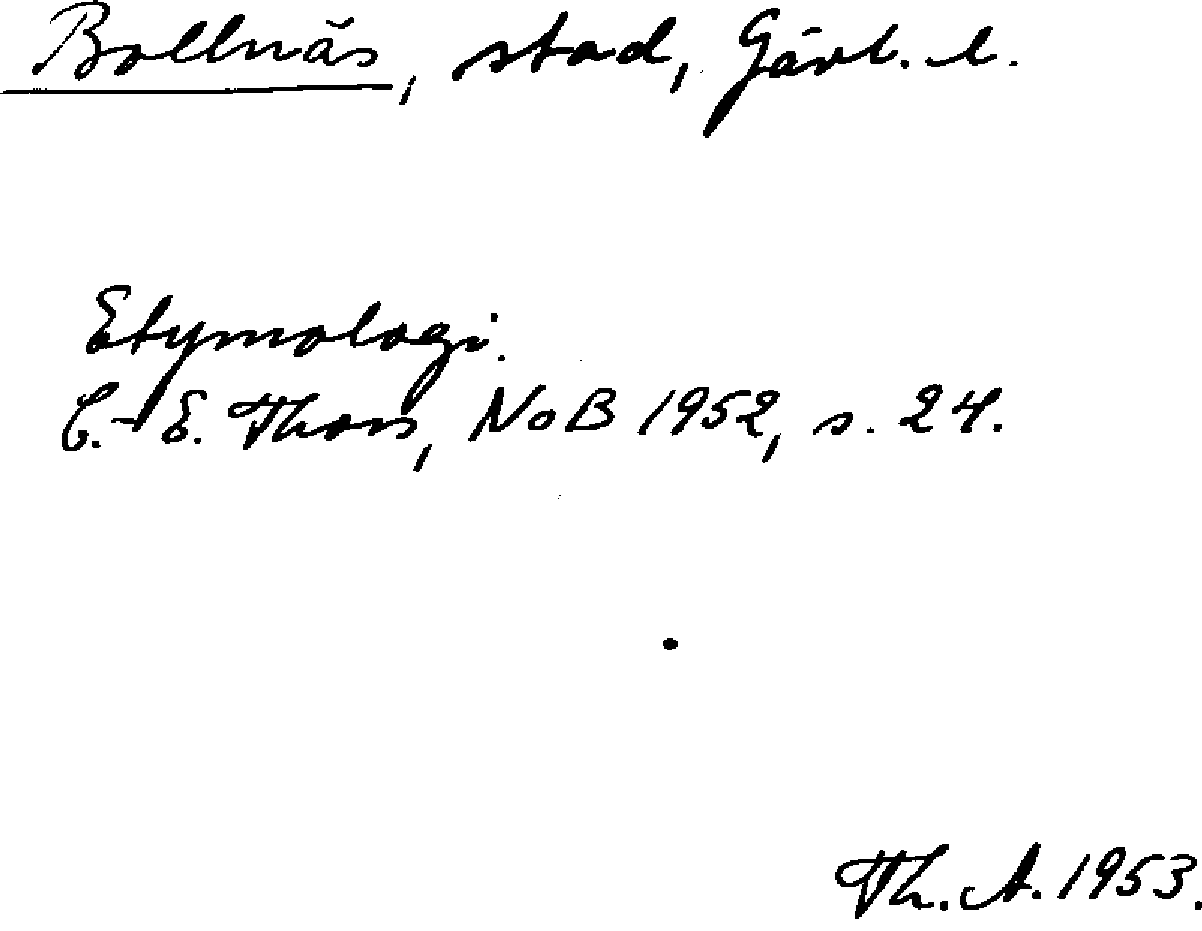 Bollnäs, stad, Gävl. l.
Etymologi.
C.-E. Thors, NoB 1952, s. 24.
Th. A. 1953.